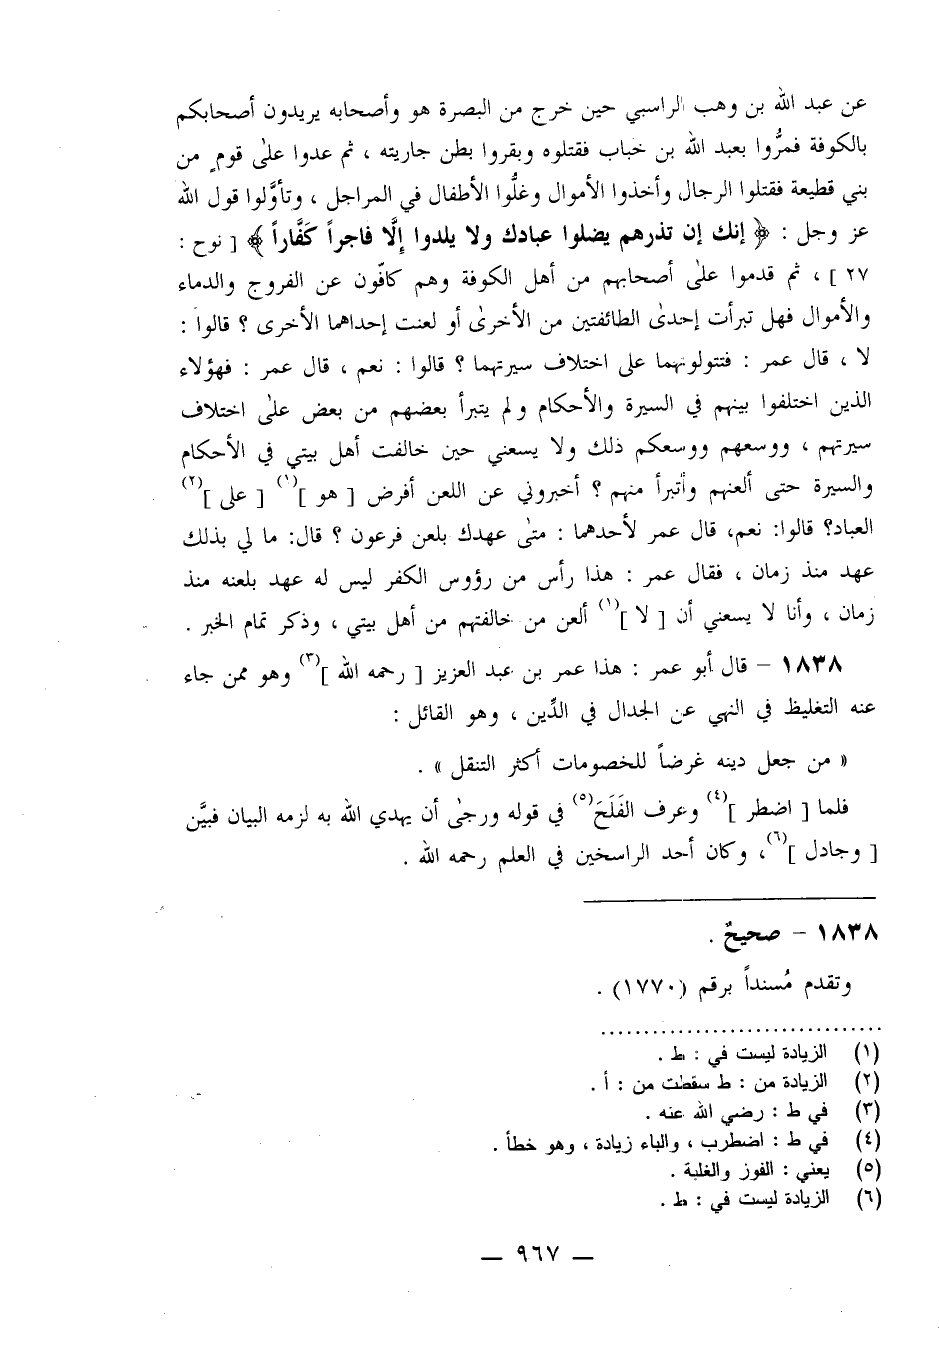 عن عبد الله بن وهب الراسبي حين خرج من البصرة هو وأصحابه يريدون أصحابكم
بالكوفة فمرُّوا بعبد الله بن خباب فقتلوه وبقروا بطن جاريته ، ثم عدوا علىٰ قومٍ من
بني قطيعة فقتلوا الرجال وأخذوا الأموال وغلُّوا الأطفال في المراجل ، وتأوَّلوا قول الله
عز وجل : ﴿ إنك إن تذرهم يضلوا عبادك ولا يلدوا إلَّا فاجراً كفَّاراً ﴾ [ نوح :
٢٧ ] ، ثم قدموا علىٰ أصحابهم من أهل الكوفة وهم كافّون عن الفروج والدماء
والأموال فهل تبرأت إحدىٰ الطائفتين من الأخرىٰ أو لعنت إحداهما الأخرى ؟ قالوا :
لا ، قال عمر : فتتولونهما على اختلاف سيرتهما ؟ قالوا : نعم ، قال عمر : فهؤلاء
الذين اختلفوا بينهم في السيرة والأحكام ولم يتبرأ بعضهم من بعض علىٰ اختلاف
سيرتهم ، ووسعهم ووسعكم ذلك ولا يسعني حين خالفت أهل بيتي في الأحكام
والسيرة حتى ألعنهم وأتبرأ منهم ؟ أخبروني عن اللعن أفرض [ هو ](١) [ على ](٢)
العباد؟ قالوا: نعم، قال عمر لأحدهما : متىٰ عهدك بلعن فرعون ؟ قال: ما لي بذلك
عهد منذ زمان ، فقال عمر : هذا رأس من رؤوس الكفر ليس له عهد بلعنه منذ
زمان ، وأنا لا يسعني أن [ لا ](١) ألعن من خالفتهم من أهل بيتي ، وذكر تمام الخبر .
١٨٣٨ – قال أبو عمر : هذا عمر بن عبد العزيز [ رحمه الله ](٣) وهو ممن جاء
عنه التغليظ في النهي عن الجدال في الدِّين ، وهو القائل :
« من جعل دينه غرضاً للخصومات أكثر التنقل » .
فلما [ اضطر ](٤) وعرف الفَلَجَ(٥) في قوله ورجىٰ أن يهدي الله به لزمه البيان فبيَّن
[ وجادل ](٦)، وكان أحد الراسخين في العلم رحمه الله .
١٨٣٨ – صحيحٌ .
وتقدم مُسنداً برقم (١٧٧٠) .
(١) الزيادة ليست في : ط .
(٢) الزيادة من : ط سقطت من : أ .
(٣) في ط : رضي الله عنه .
(٤) في ط : اضطرب ، والباء زيادة ، وهو خطأ .
(٥) يعني : الفوز والغلبة .
(٦) الزيادة ليست في : ط .
— ٩٦٧ —